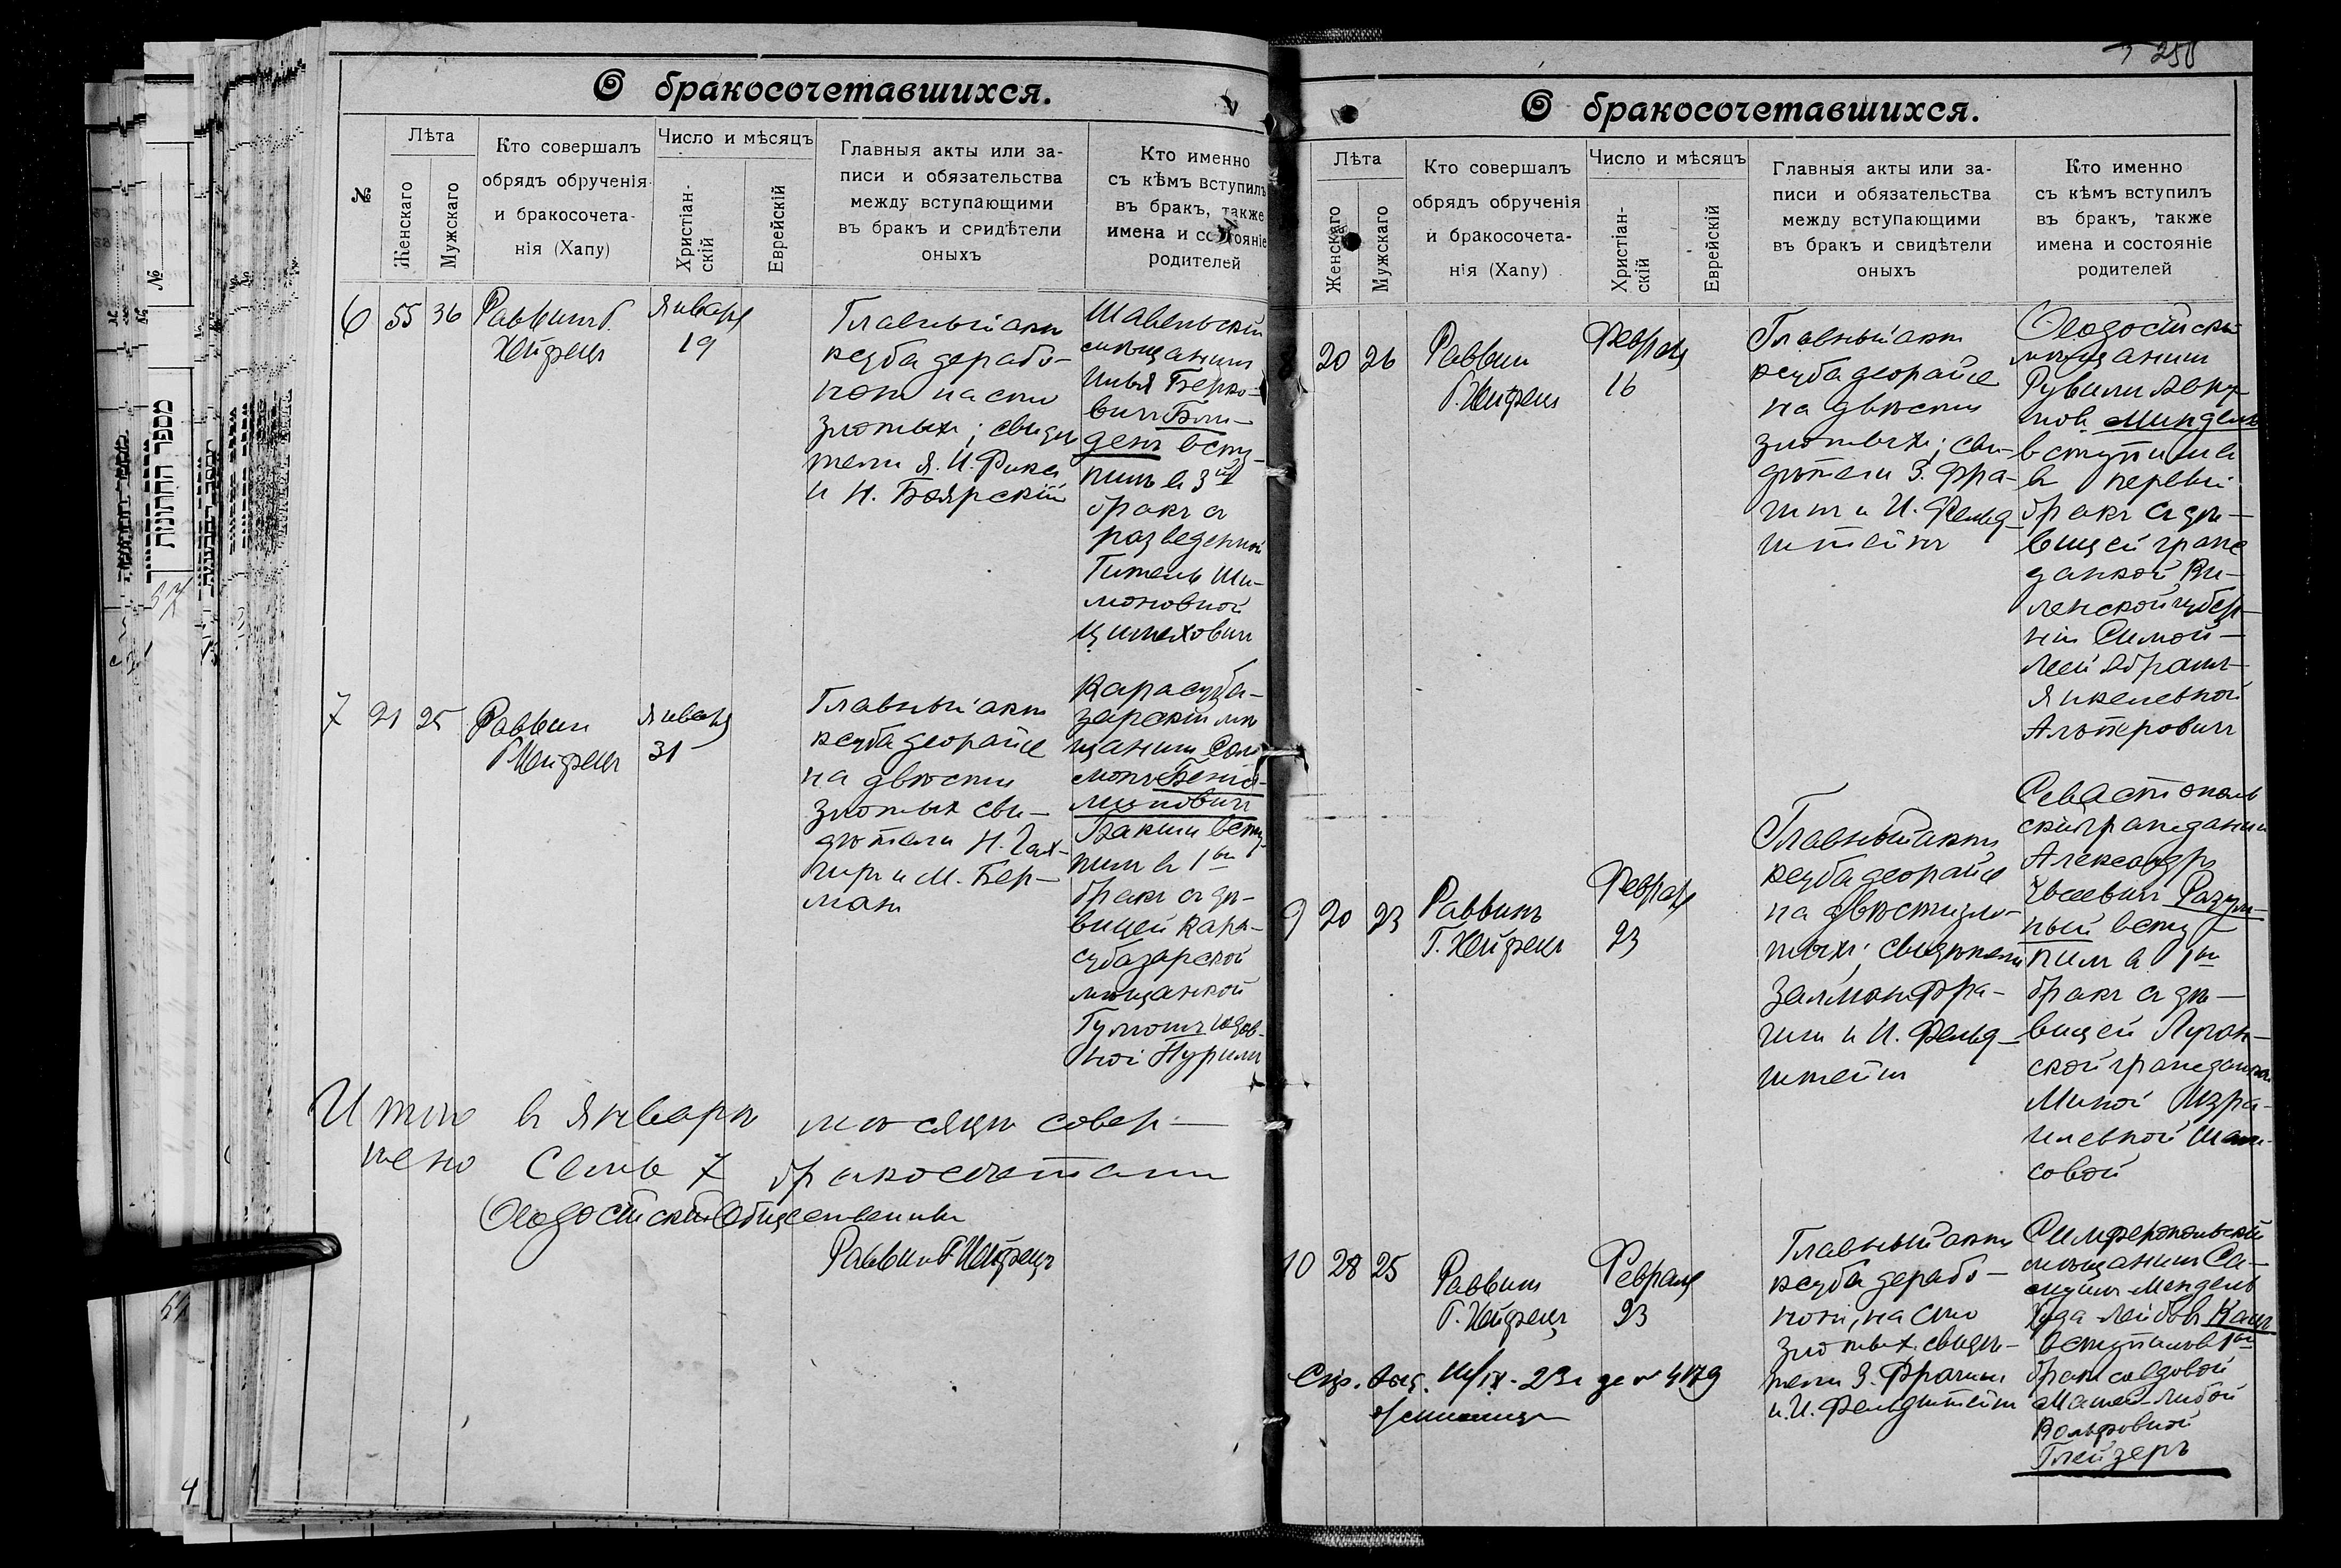 О бракосочетавшихся.
№
Лѣта
Женскаго
Мужскаго
Кто совершалъ
обрядъ обрученія
и бракосочета-
нія (Хапу)
Число и мѣсяцъ
Христіан-
скій
Еврейскій
Главныя акты или за-
писи и обязательства
между вступающими
въ бракъ и свидѣтели
оныхъ
Кто именно
съ кѣмъ вступилъ
въ бракъ, также
имена и состояніе
родителей
6
55
36
Раввинъ Г.
Хейфецъ
Января
19
Главный актъ
ксуба дерабо-
нонъ на сто
злотыхъ; свидѣ
тели Я. И. Фикс
и Н. Боярскій
Шавельскій
мѣщанинъ
Илья Берко-
вичъ
денъ всту-
пилъ въ 3й
бракъ съ
разведенной
Гителъ Ши-
моновной
7
21
25
Раввинъ
Г Хейфецъ
Января
31
Главный актъ
ксуба деорайсе
на двѣсти
злотыхъ сви-
дѣтели Н.
и М. Бер-
манъ
Карасуба-
зарскій мѣ
щанинъ Соло
монъ Беніа-
миновичъ
Бакши всту
пилъ въ 1ый
бракъ съ дѣ-
вицей Кара-
субазарской
мѣщанкой
Юдов-
ной Пуримъ
Итого въ Январѣ мѣсяцѣ совер-
шено Семь 7 бракосочетаній
Ѳеодосійскій Общественный
Раввинъ Г Хейфецъ
250
О бракосочетавшихся.
Лѣта
Женскаго
Мужскаго
Кто совершалъ
обрядъ обрученія
и бракосочета-
нія (Хапу)
Число и мѣсяцъ
Христіан-
скій
Еврейскій
Главныя акты или за-
писи и обязательства
между вступающими
въ бракъ и свидѣтели
оныхъ
Кто именно
съ кѣмъ вступилъ
въ бракъ, также
имена и состояніе
родителей
8
20
26
Раввинъ
Г. Хейфецъ
Февраля
16
Главный актъ
ксуба деорайсе
на двѣсти
злотыхъ; сви-
дѣтели З. Фра-
и И. Фельд-
штейнъ
Ѳеодосійскій
мѣщанинъ
вступилъ
въ первый
бракъ съ дѣ-
вицей граж
данкой Ви-
ленской губер-
ніи Симой-
Леей Абрамъ-
Янкелевной
Альтеровичъ
9
20
23
Раввинъ
Г. Хейфецъ
Февраля
23
Главный актъ
ксуба деорайсе
на двѣсти зло-
тыхъ; свидѣтели
Залманъ Фра-
и И. Фельд-
штейнъ
Севастополь
скій гражданинъ
Александръ
Евсеевичъ Разум-
ный всту
пилъ въ 1ый
бракъ съ дѣ-
вицей Луган-
ской гражданкой
Миной Изра-
илевной
10
28
25
Раввинъ
Г. Хейфецъ
Февраля
23
Главный актъ
ксуба дерабо-
нонъ, на сто
злотыхъ свидѣ-
тели З.
и И. Фельдштейнъ
Симферопольскій
мѣщанинъ Са-
муилъ Мендель
Юда Лейбовъ Кацъ
вступилъ въ 1ый
бракъ съ вдовой
Машей-Либой
Вольфовной
Глейзеръ